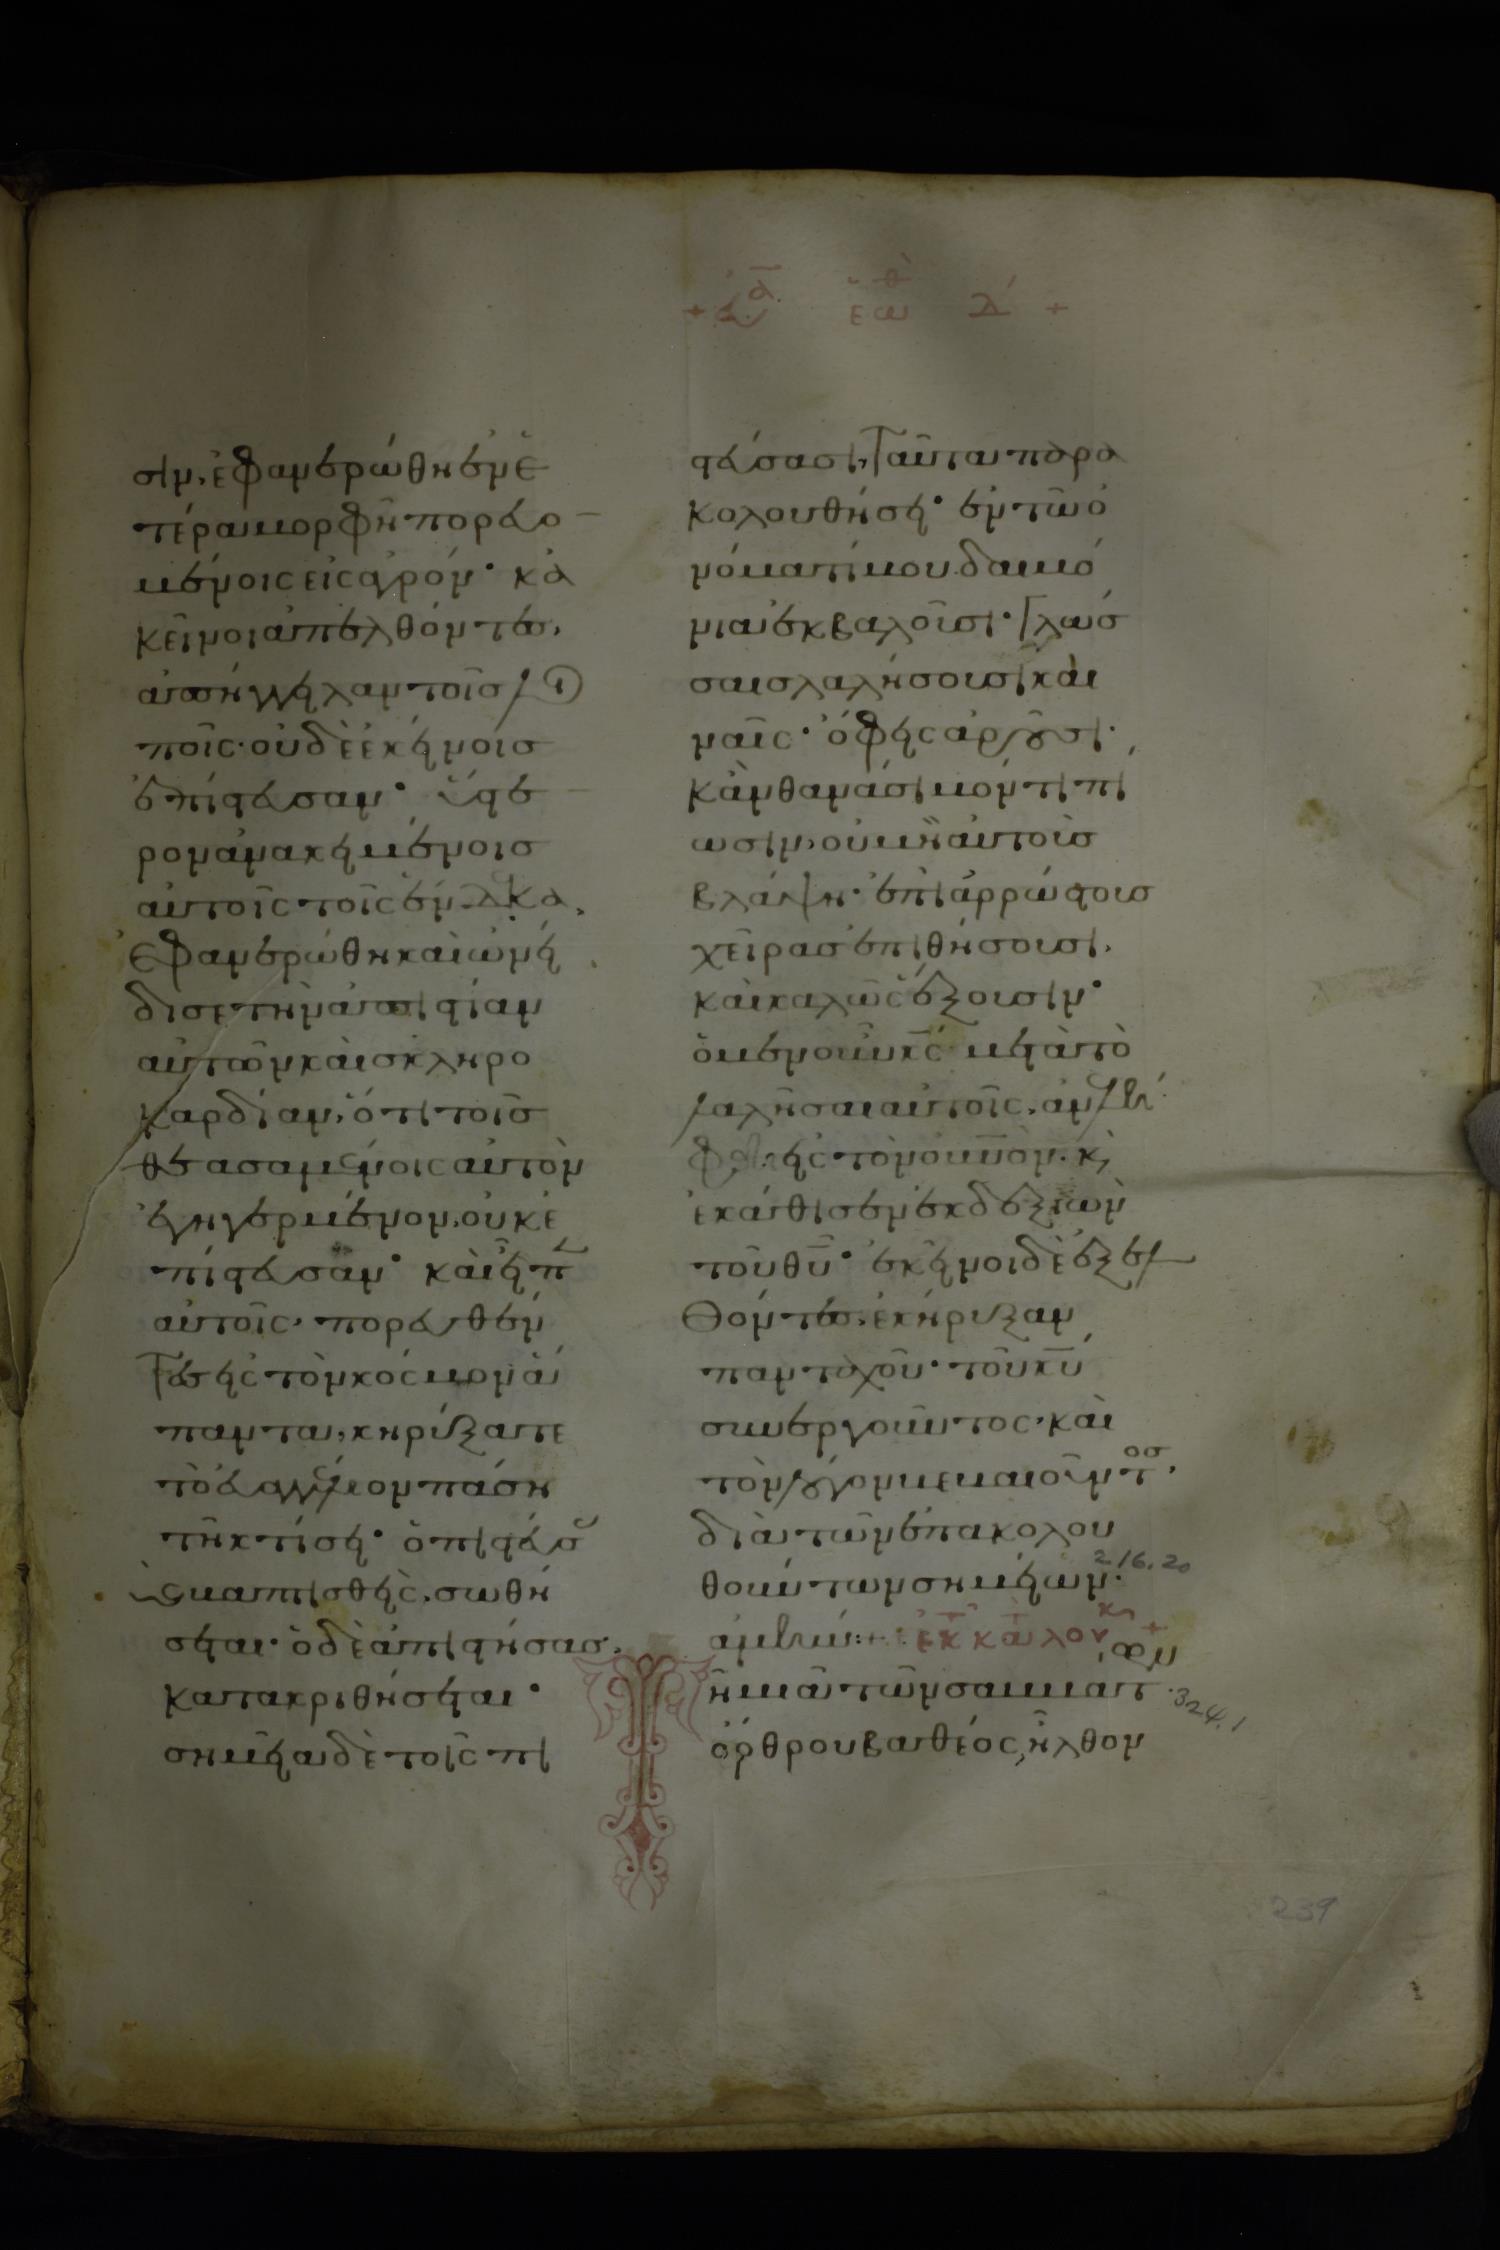 + εὐα ἑωθ Δ +
σιν, ἐφανερώθη ἐν ἑ
τέρα μορφῆ πορευο
μένοις εἰς ἀγρόν· κἀ
κεῖνοι ἀπελθόντες,
ἀπήγγειλαν τοῖς λοι
ποῖς· οὐδὲ ἐκείνοις
ἐπίστευσαν· ὕστε
ρον ἀνακειμένοις
αὐτοῖς τοῖς ἕνδεκα,
ἐφανερώθη καὶ ὠνεί
δισε τὴν ἀπιστίαν
αὐτῶν καὶ σκληρο
καρδίαν, ὅτι τοῖς
θεασαμένοις αὐτὸν
ἐγηγερμένον, οὐκ ἐ
πίστευσαν· καὶ εἶπ
αὐτοῖς· πορευθέν
τες εἰς τὸν κόσμον ἅ
παντα, κηρύξατε
τὸ εὐαγγέλιον πάση
τῆ κτίσει· ὁ πιστεύσ
ς καὶ βαπτισθεὶς, σωθή
σεται· ὁ δὲ ἀπιστήσας,
κατακριθήσεται·
σημεῖα δὲ τοῖς πι
στεύσασι, ταῦτα παρα
κολουθήσει· ἐν τῶ ὀ
νόματί μου δαιμό
νια ἐκβαλοῦσι· γλώσ
σαις λαλήσουσι και
ναῖς· ὄφεις ἀροῦσι·
κἂν θανάσιμόν τι πί
ωσιν, οὐ μὴ αὐτοὺς
βλάψη· ἐπὶ ἀρρώστους
χεῖρας ἐπιθήσουσι,
καὶ καλῶς ἕξουσιν·
ὁ μὲν οὖν κς μετὰ τὸ
λαλῆσαι αὐτοῖς, ἀνελή
φθη εἰς τὸν οὐνον· κ
ἐκάθισεν ἐκ δεξιῶν
τοῦ θυ· ἐκεῖνοι δὲ ἐξελ
θόντες, ἐκήρυξαν
πανταχοῦ· τοῦ κυ
συνεργοῦντος· καὶ
τὸν λόγον βεβαιοῦντος·
διὰ τῶν ἐπακολου
θούντων σημείων· 216.20
ἀμήν:
Τῆ μιᾶ τῶν σαββάτ 324.1
ὄρθρου βαθέος, ἦλθον
239